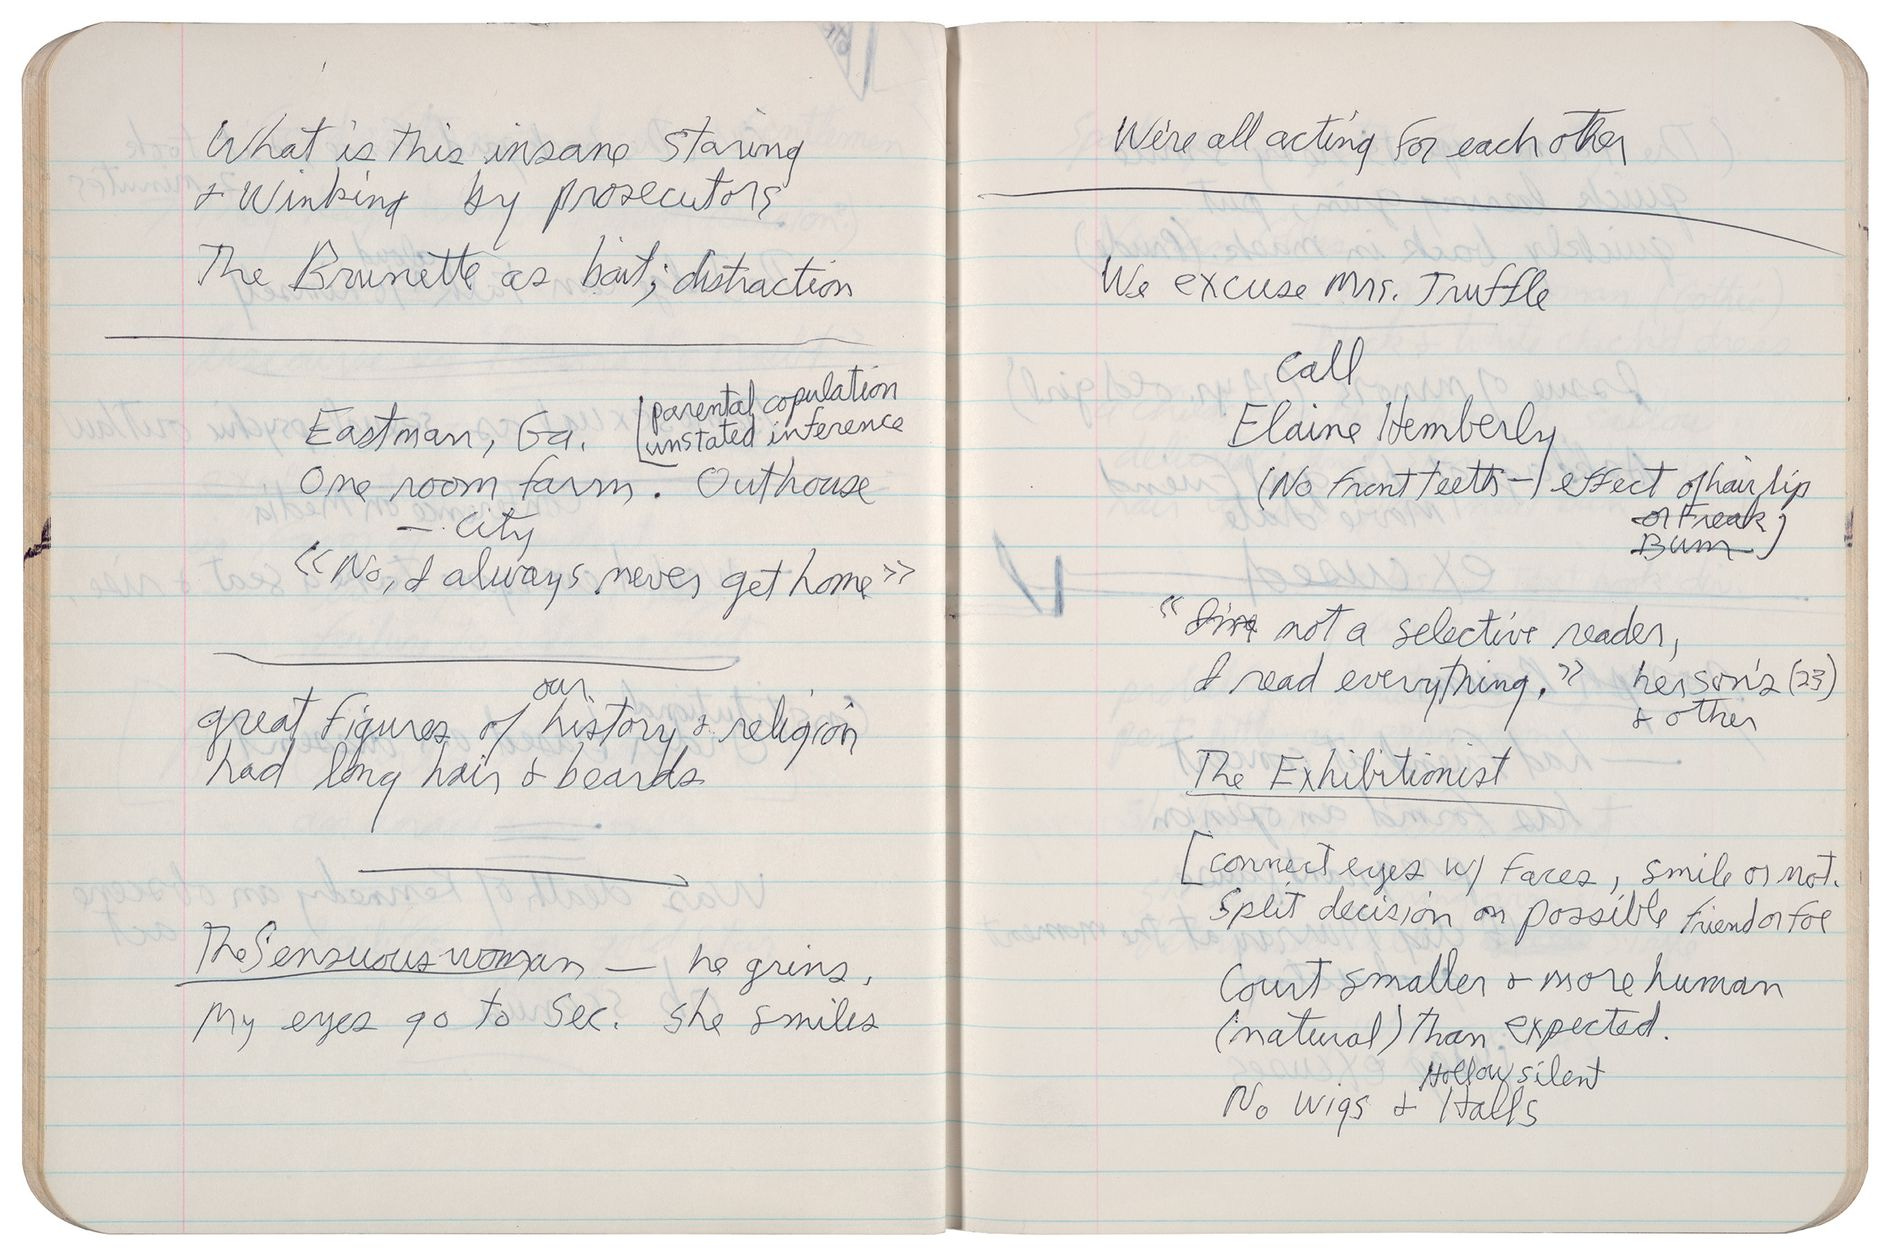 What is this insane staring
& Winking by prosecutors
The Brunette as bait; distraction
Eastman, Ga. [parental copulation
unstated inference
One room farm. Outhouse
— city
"No, I always never get home"
our
great figures of history & religion
had long hair & beards
The Sensuous woman — he grins,
My eyes go to Sec. she smiles
We're all acting for each other
We excuse Mrs. Truffle
call
Elaine Hemberly
(No front teeth — effect of hair lip
or Freak)
Bum
"I'm not a selective reader,
I read everything." her son's (23)
& other
The Exhibitionist
[connect eyes w/ faces, smile or not.
Split decision on possible friend or foe
Court smaller & more human
(natural) than expected.
Hollow silent
No wigs & Halls